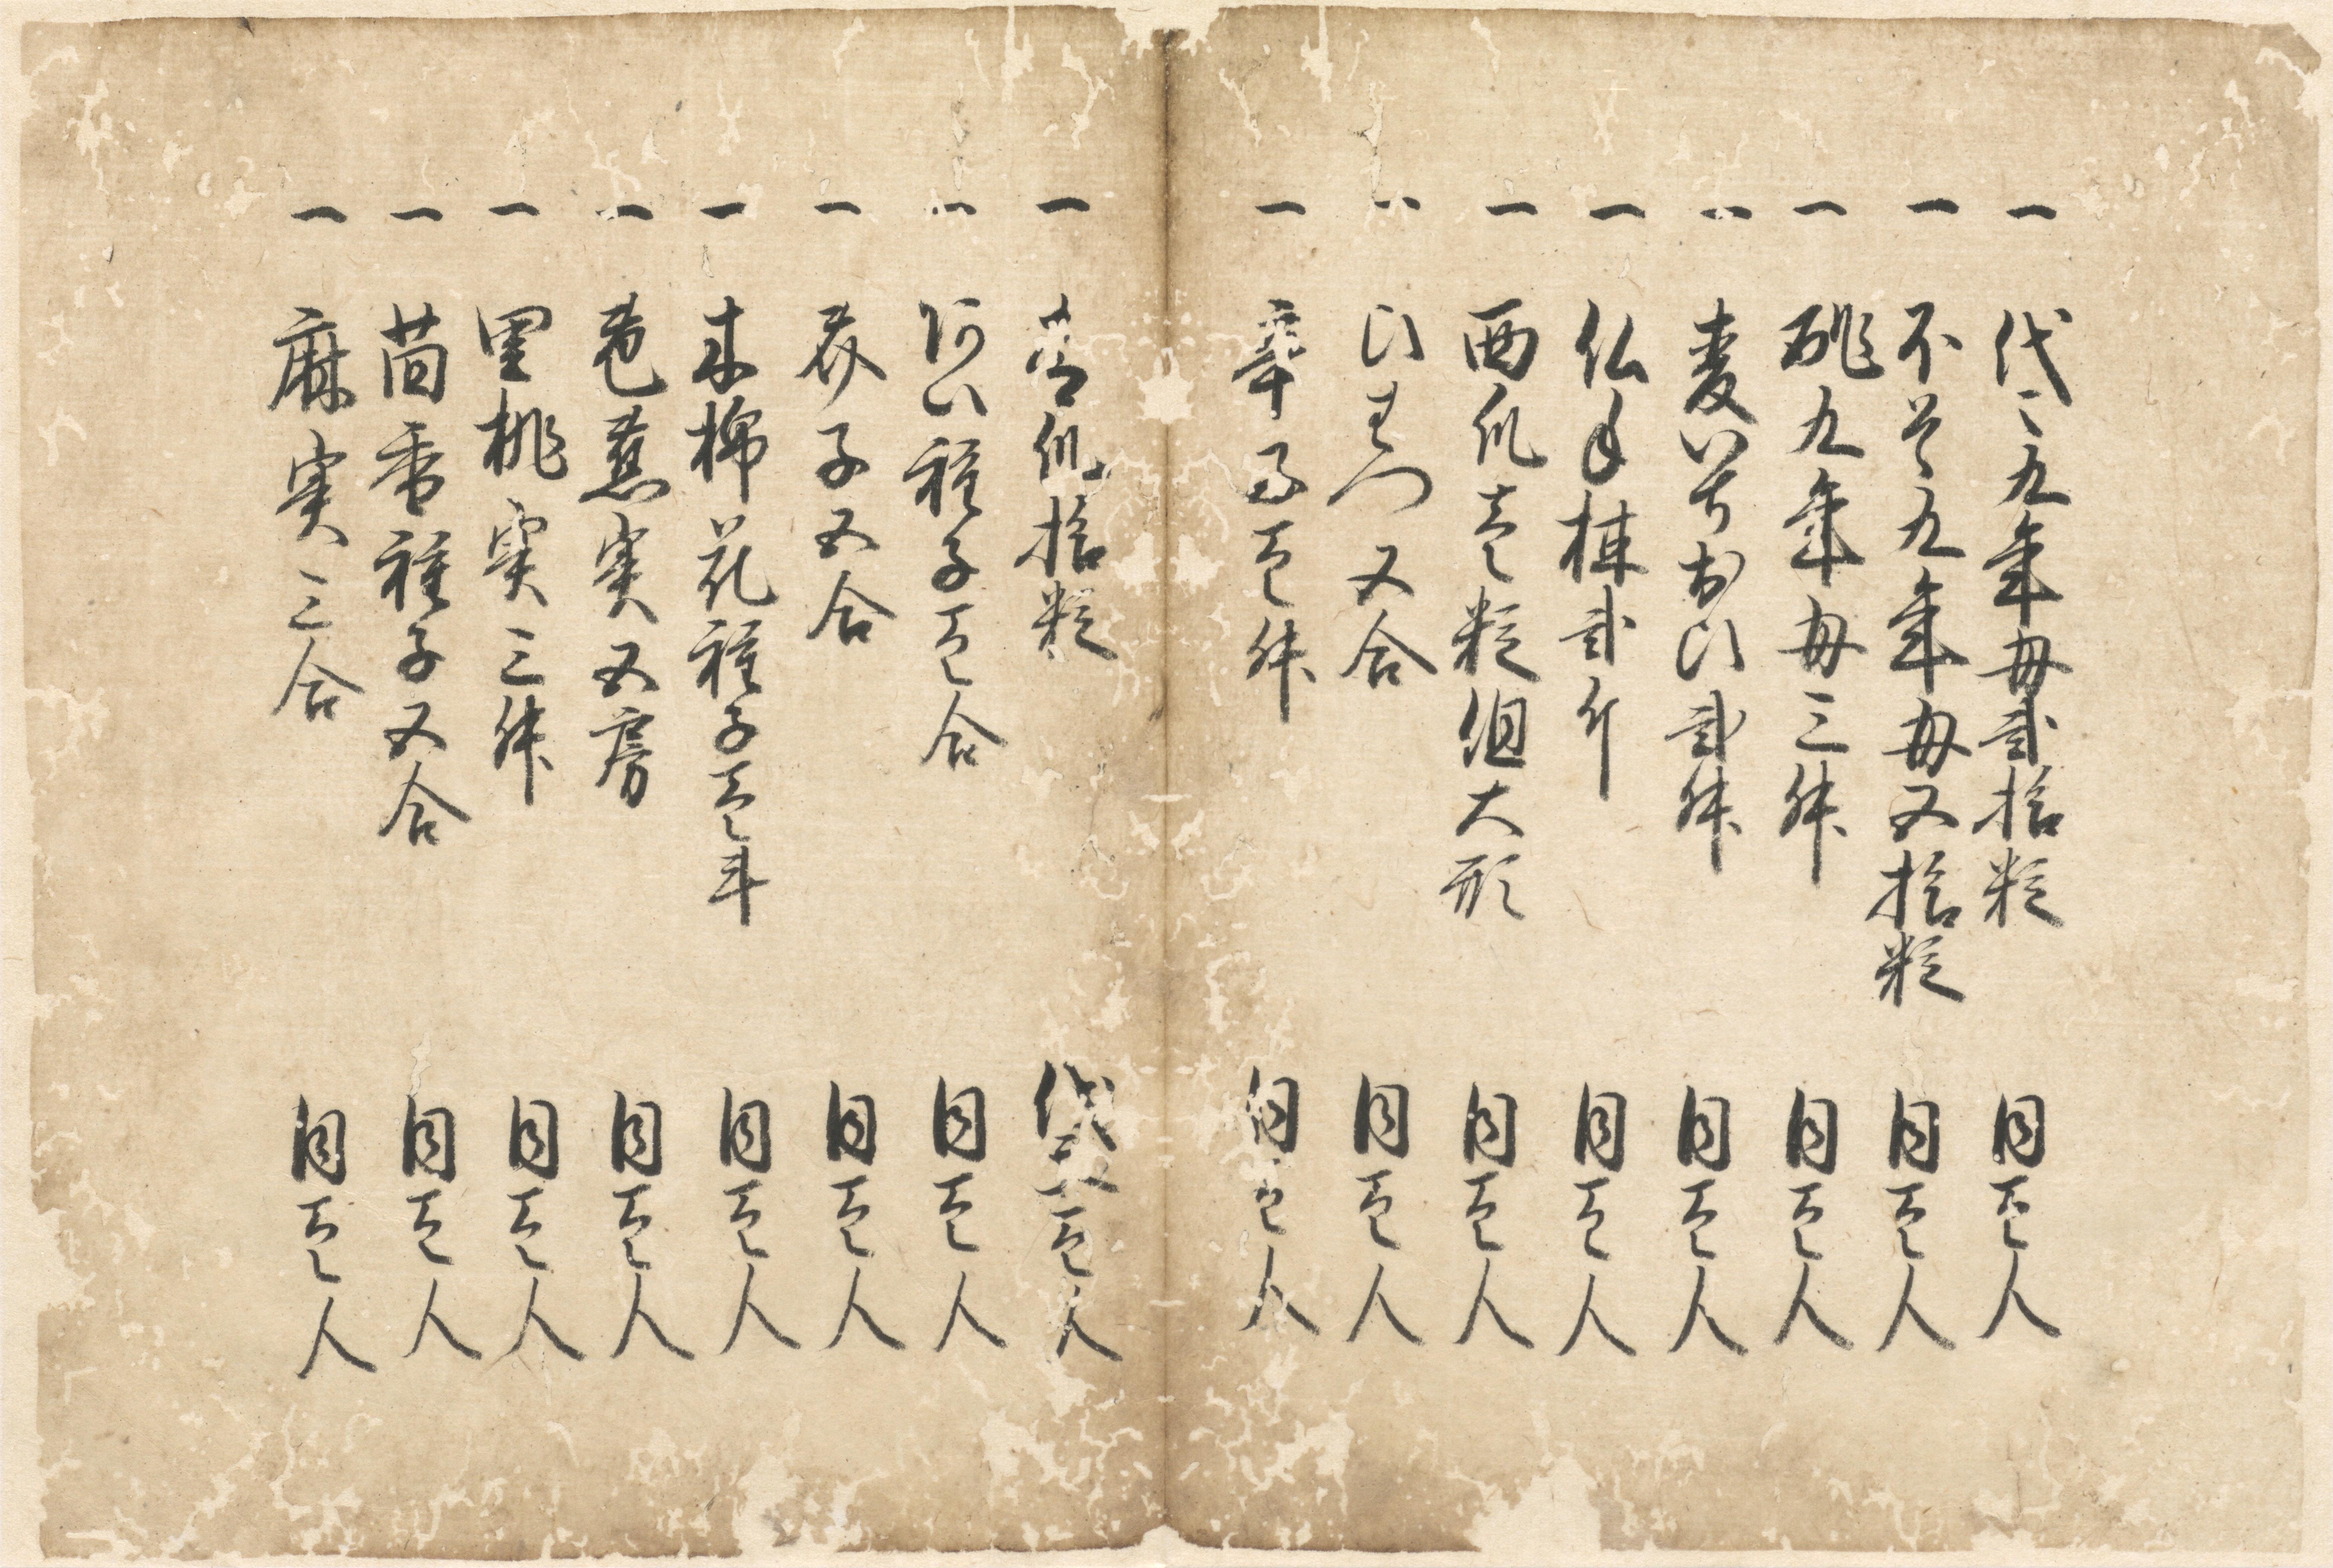 一 代々九年母弐拾粒 同壱人
一 不そ九年母五拾粒 同壱人
一 桃九年母三舛 同壱人
一 麦いちおひ弐舛 同壱人
一 仏手棟弐斤 同壱人
一 西瓜壱粒但大形 同壱人
一 ひまつ五合 同壱人
一 辛子壱舛 同壱人
一 青瓜拾粒 代敷壱人
一 阿ひ種子壱合 同壱人
一 芥子五合 同壱人
一 木棉花種子壱斗 同壱人
一 芭蕉実五房 同壱人
一 里桃実三舛 同壱人
一 茴香種子五合 同壱人
一 麻実三合 同壱人